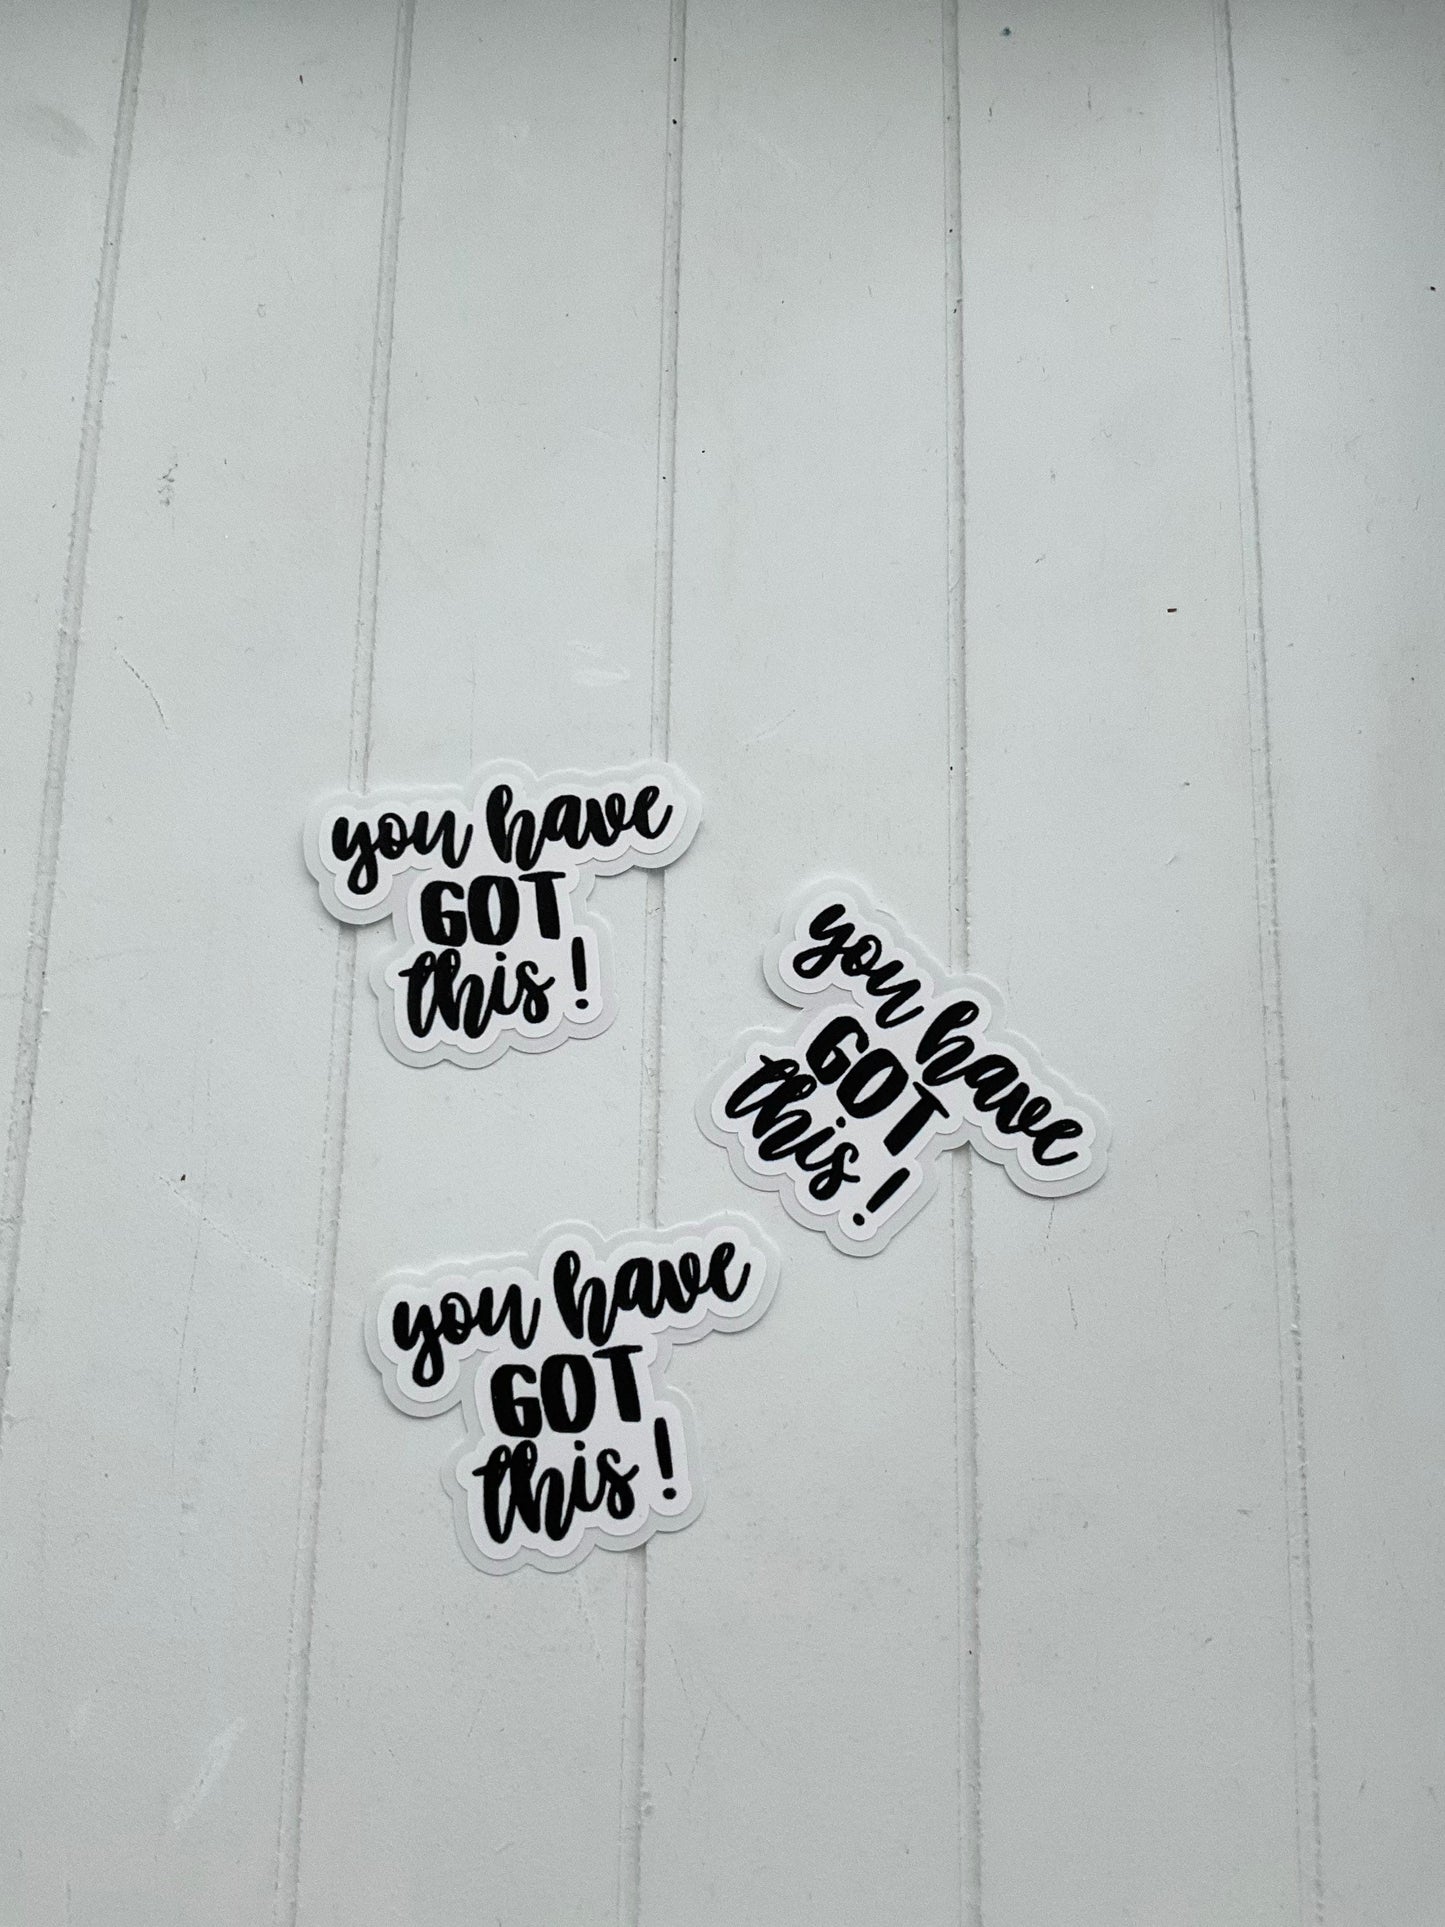 you have
GOT
this!
you have
GOT
this!
you have
GOT
this!